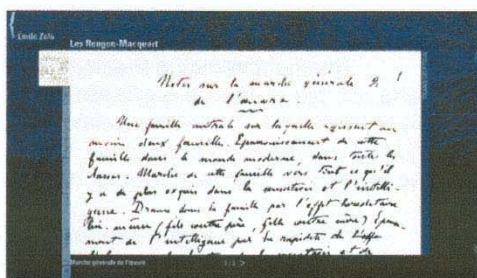 Émile Zola
Les Rougon-Macquart
Notes sur la marche générale
de l'œuvre.
Une famille centrale sur laquelle agissent au
moins deux familles. Epanouissement de cette
famille dans le monde moderne, dans toutes les
classes. Marche de cette famille vers tout ce qu'il
y a de plus exquis dans la sensation et l'intelli-
gence. Drame dans la famille par l'effet héréditaire
lui-même (fils contre père, fille contre mère) Epuise-
ment de l'intelligence par la rapidité de l'
Marche générale de l'œuvre